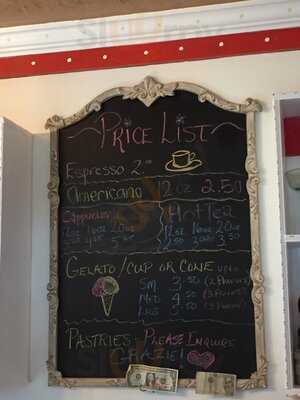 PRICE LIST
Espresso 2.00
Americano 12oz 2.50
Cappuccino Hot Tea
12oz 16oz 20oz 12oz 16oz 20oz
2.50 3.00 3.50
GELATO/CUP OR CONE
SM 3.50 (2 Flavors)
MED 4.50 (3 Flavors)
LRG 5.50
PASTRIES - PLEASE INQUIRE
GRAZIE!